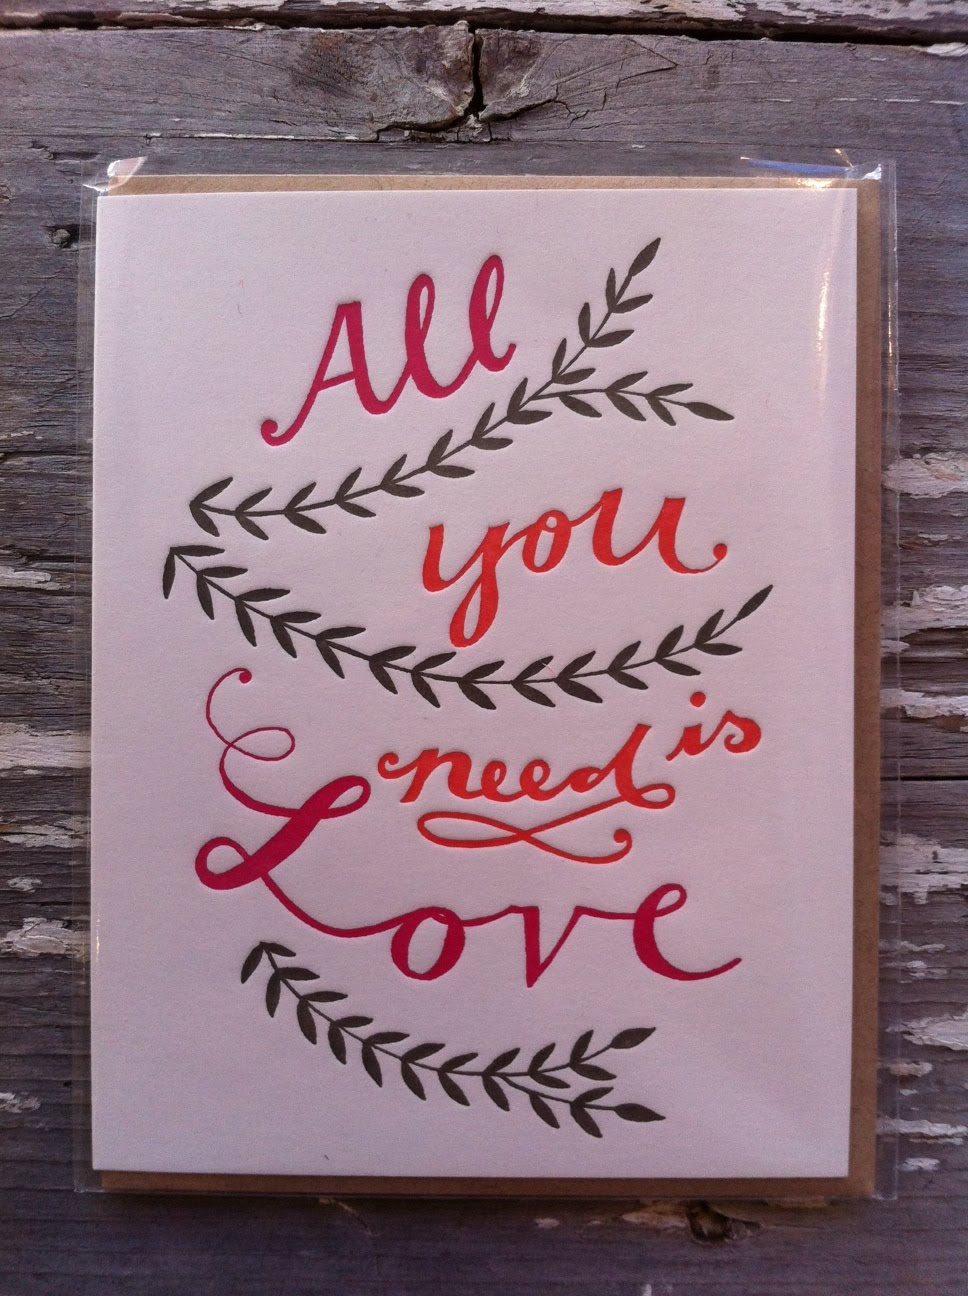 All
you
need is
Love